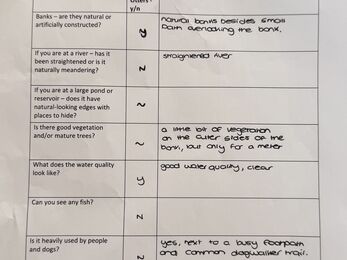 Otters -
y/n
Banks – are they natural or
artificially constructed?
y
natural banks besides small
path overlooking the bank.
If you are at a river – has it
been straightened or is it
naturally meandering?
N
straightened river
If you are at a large pond or
reservoir – does it have
natural-looking edges with
places to hide?
~
Is there good vegetation
and/or mature trees?
~
a little bit of vegetation
on the outer sides of the
bank, but only for a meter
What does the water quality
look like?
y
good water quality, clear
Can you see any fish?
N
Is it heavily used by people
and dogs?
N
yes, next to a busy footpath
and common dogwalker trail.